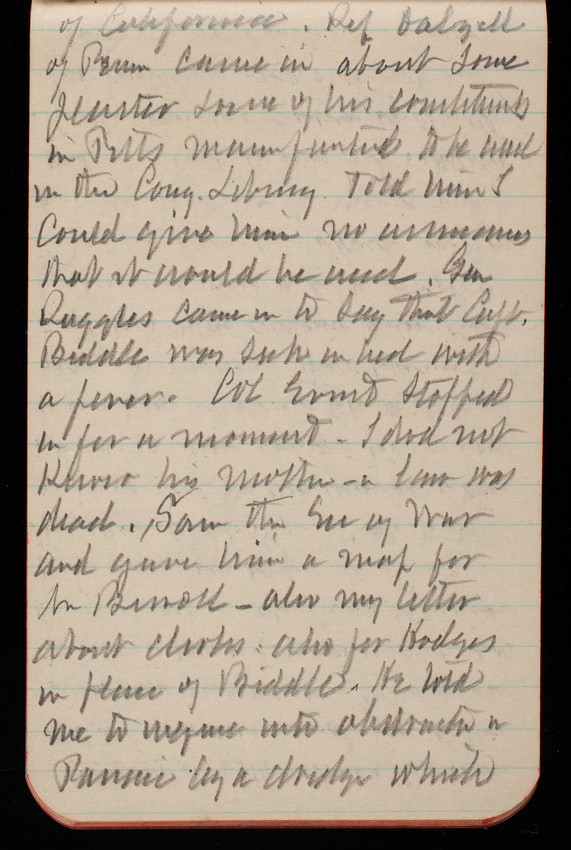 of California. Rep Dalzell
of Penn came in about some
plaster some of his constituents
in Pitts manufactured to be used
in the Cong. Library. Told him I
could give him no assurances
that it would be used. Gen
Ruggles came in to say that Capt.
Biddle was sick in bed with
a fever. Col Ernst stopped
in for a moment - I did not
know his mother-in law was
dead. Saw the Sec of War
and gave him a map for
- also my letter
about clerks. also for Hodges
in place of Biddle. He told
me to inquire into obstruction in
by a dredge which